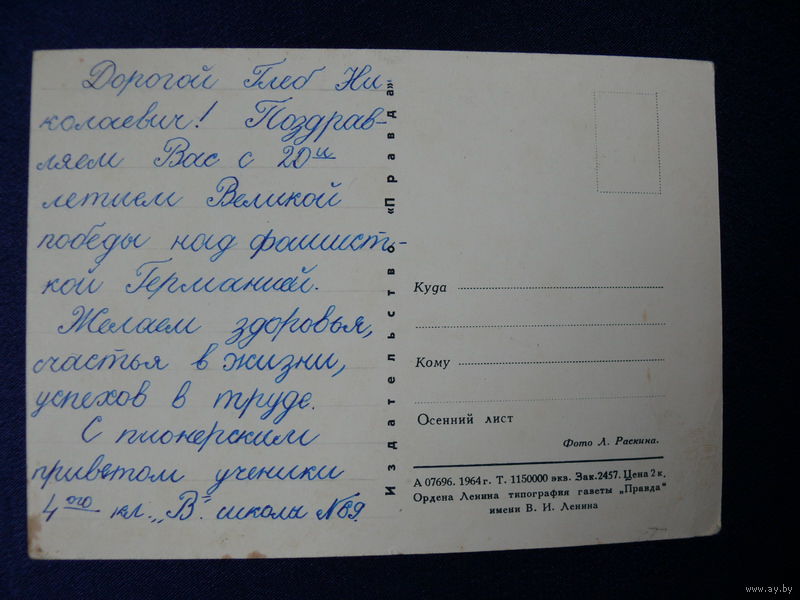 Дорогой Глеб Ни
колаевич! Поздрав-
ляем Вас с 20и
летием Великой
победы над фашист-
кой Германией.
Желаем здоровья,
счастья в жизни,
успехов в труде.
С пионерским
приветом ученики
4ого кл. „В" школы №89.
Издательство «Правда»
Куда
Кому
Осенний лист
Фото Л. Раскина.
А 07696. 1964 г. Т. 1150000 экз. Зак.2457. Цена 2 к.
Ордена Ленина типография газеты „Правда"
имени В. И. Ленина
www.ay.by